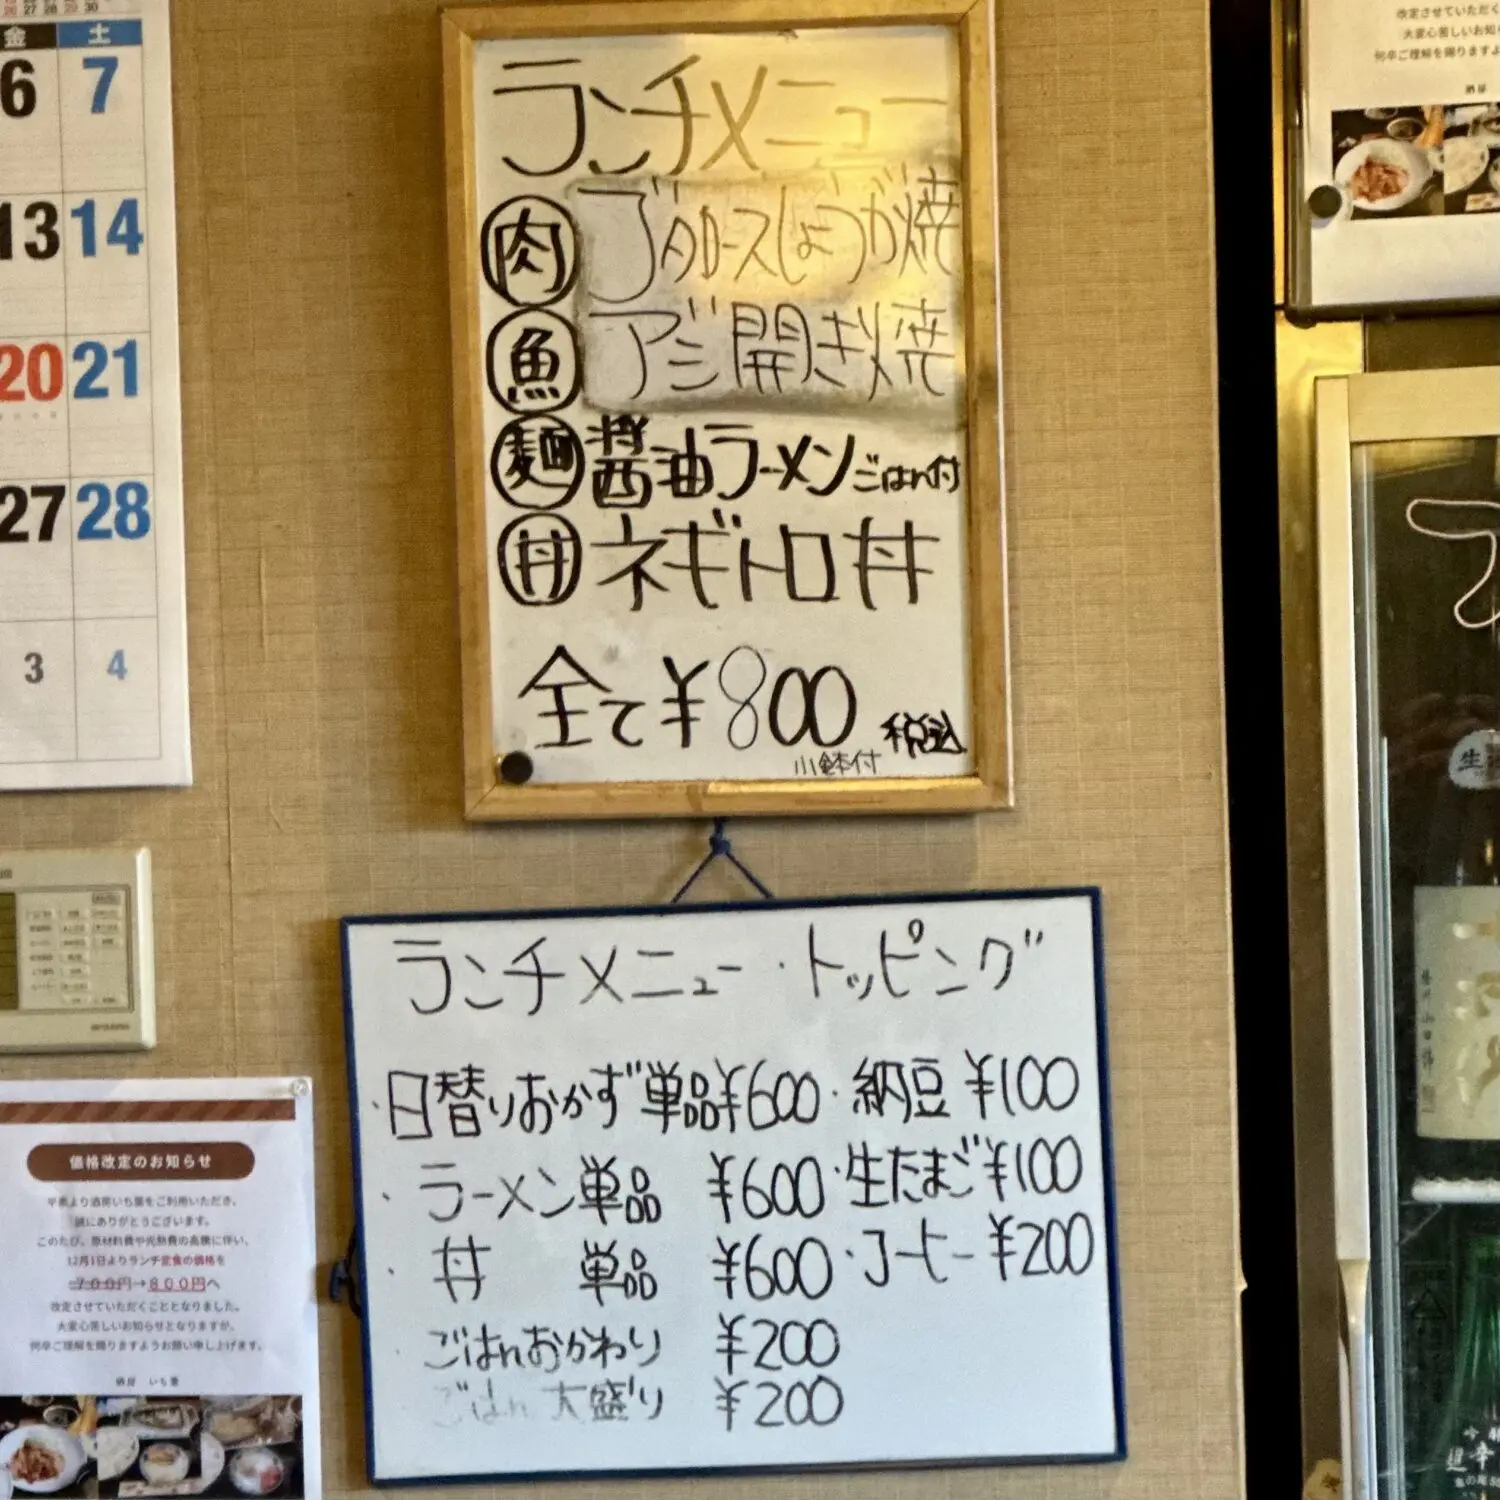 金 土
6 7
13 14
20 21
27 28
3 4
ランチメニュー
肉 ブタロースしょうが焼
魚 アジ開き焼
麺 醤油ラーメン ごはん付
丼 ネギトロ丼
全て¥800 税込
小鉢付
ランチメニュー・トッピング
・日替りおかず単品¥600 ・納豆 ¥100
・ラーメン単品 ¥600 ・生たまご¥100
・丼 単品 ¥600 ・コーヒー ¥200
・ごはんおかわり ¥200
ごはん 大盛り ¥200
価格改定のお知らせ
平素より酒房いち葉をご利用いただき、
誠にありがとうございます。
このたび、原材料費や光熱費の高騰に伴い、
12月1日よりランチ定食の価格を
700円→800円へ
改定させていただくこととなりました。
大変心苦しいお知らせとなりますが、
何卒ご理解を賜りますようお願い申し上げます。
改定させていただく
大変心苦しいお知ら
何卒ご理解を賜りますよ
生